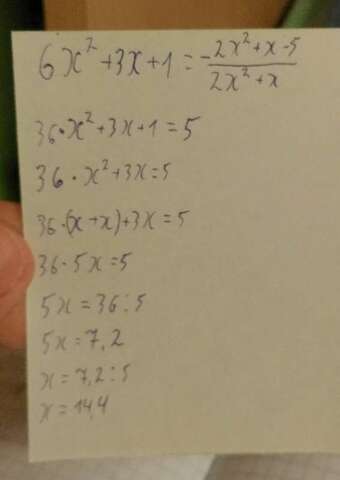 6x² + 3x + 1 = -2x² + x - 5 / 2x² + x
36 · x² + 3x + 1 = 5
36 · x² + 3x = 5
36 · (x + x) + 3x = 5
36 · 5x = 5
5x = 36 : 5
5x = 7,2
x = 7,2 : 5
x = 14,4